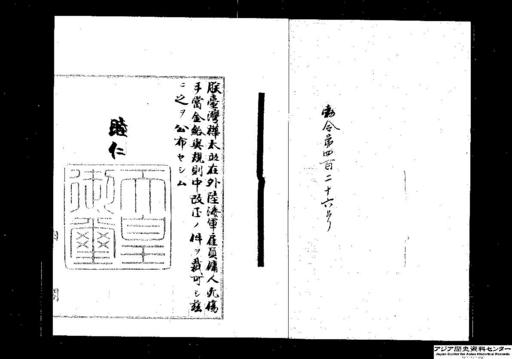 勅令第四百二十六号
朕臺灣樺太及在外陸海軍雇員傭人死傷
手當金給與規則中改正ノ件ヲ裁可シ茲
ニ之ヲ公布セシム
睦仁
天皇
御璽
アジア歴史資料センター
Japan Center for Asian Historical Records